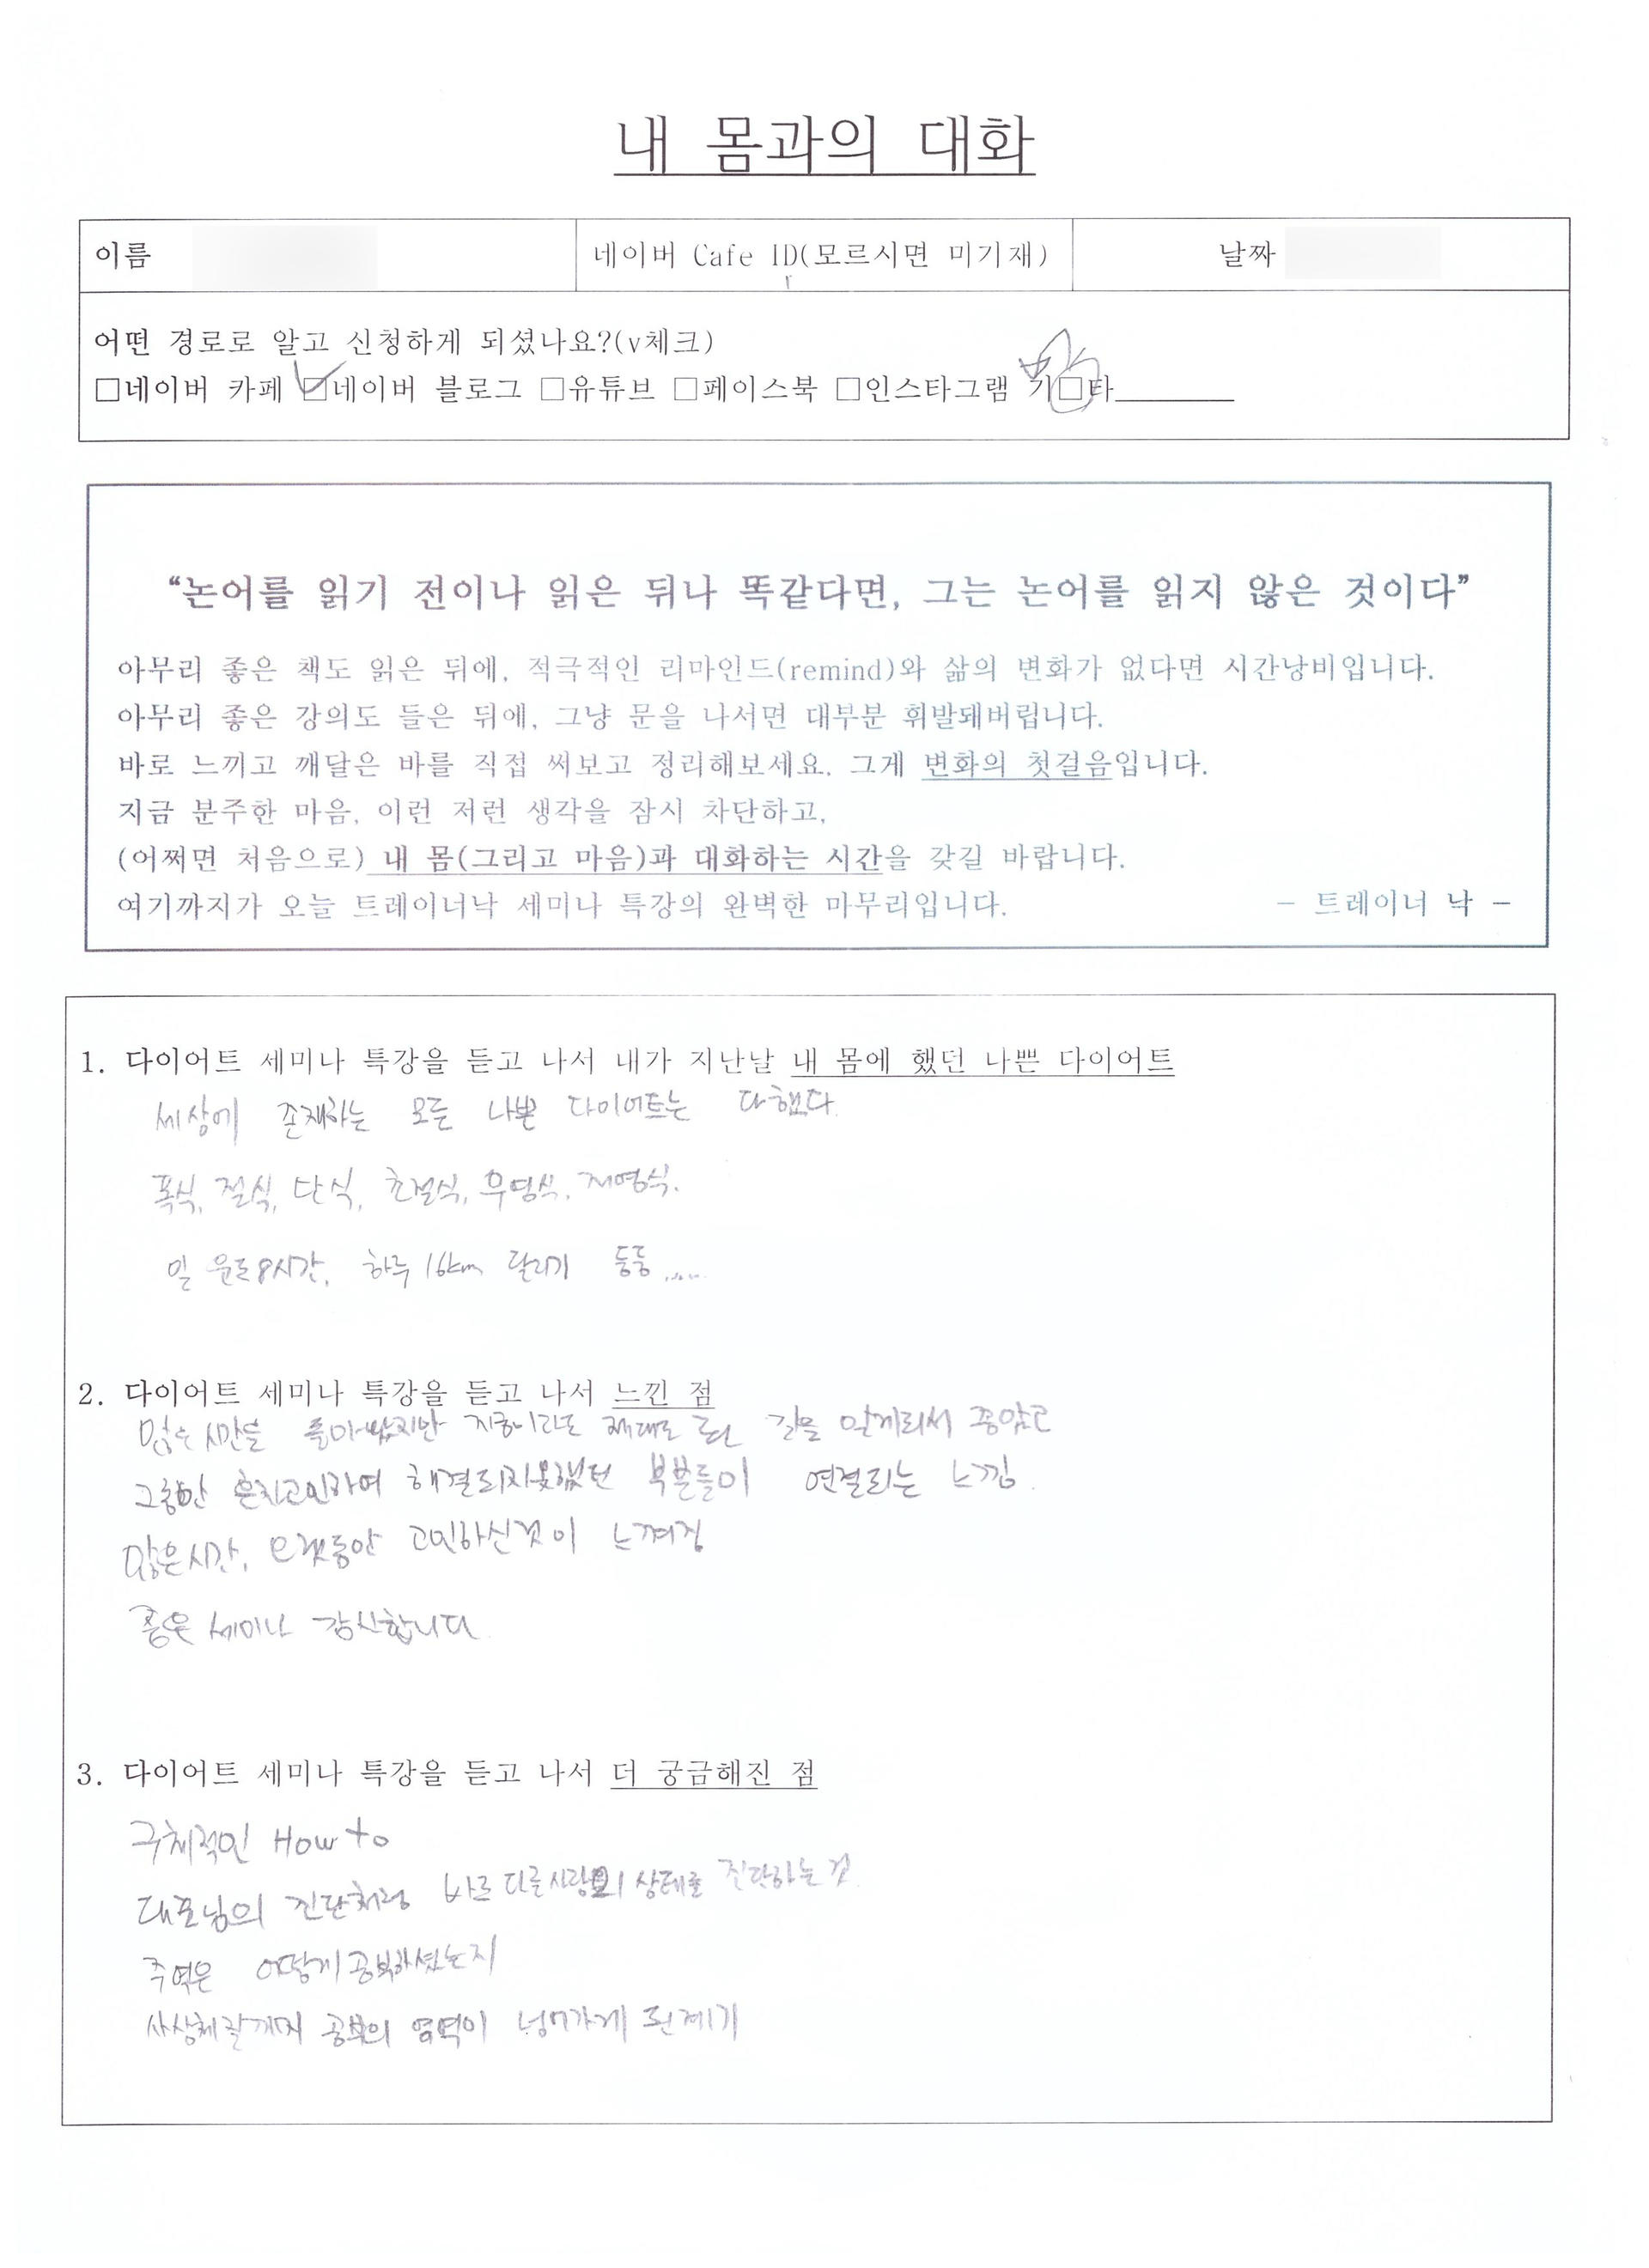 내 몸과의 대화
이름
네이버 Cafe ID(모르시면 미기재)
날짜
어떤 경로로 알고 신청하게 되셨나요?(v체크)
□네이버 카페 □네이버 블로그 □유튜브 □페이스북 □인스타그램 기□타
“논어를 읽기 전이나 읽은 뒤나 똑같다면, 그는 논어를 읽지 않은 것이다”
아무리 좋은 책도 읽은 뒤에, 적극적인 리마인드(remind)와 삶의 변화가 없다면 시간낭비입니다.
아무리 좋은 강의도 들은 뒤에, 그냥 문을 나서면 대부분 휘발돼버립니다.
바로 느끼고 깨달은 바를 직접 써보고 정리해보세요. 그게 변화의 첫걸음입니다.
지금 분주한 마음, 이런 저런 생각을 잠시 차단하고,
(어쩌면 처음으로) 내 몸(그리고 마음)과 대화하는 시간을 갖길 바랍니다.
여기까지가 오늘 트레이너낙 세미나 특강의 완벽한 마무리입니다. - 트레이너 낙 -
1. 다이어트 세미나 특강을 듣고 나서 내가 지난날 내 몸에 했던 나쁜 다이어트
세상에 존재하는 모든 나쁜 다이어트는 다했다.
폭식, 절식, 단식, 초절식, 무염식, 저염식.
일 운동8시간, 하루 16km 달리기 등등.....
2. 다이어트 세미나 특강을 듣고 나서 느낀 점
많은 시간을 돌아왔지만 지금이라도 제대로 된 길을 알게되서 좋았고
그동안 혼자고민하여 해결되지못했던 부분들이 연결되는 느낌.
많은시간, 오랫동안 고민하신것이 느껴짐
좋은 세미나 감사합니다
3. 다이어트 세미나 특강을 듣고 나서 더 궁금해진 점
구체적인 How to
대표님의 진단처럼 바로 다른사람의 상태를 진단하는 것.
주역은 어떻게 공부하셨는지
사상체질까지 공부의 영역이 넘어가게 된계기